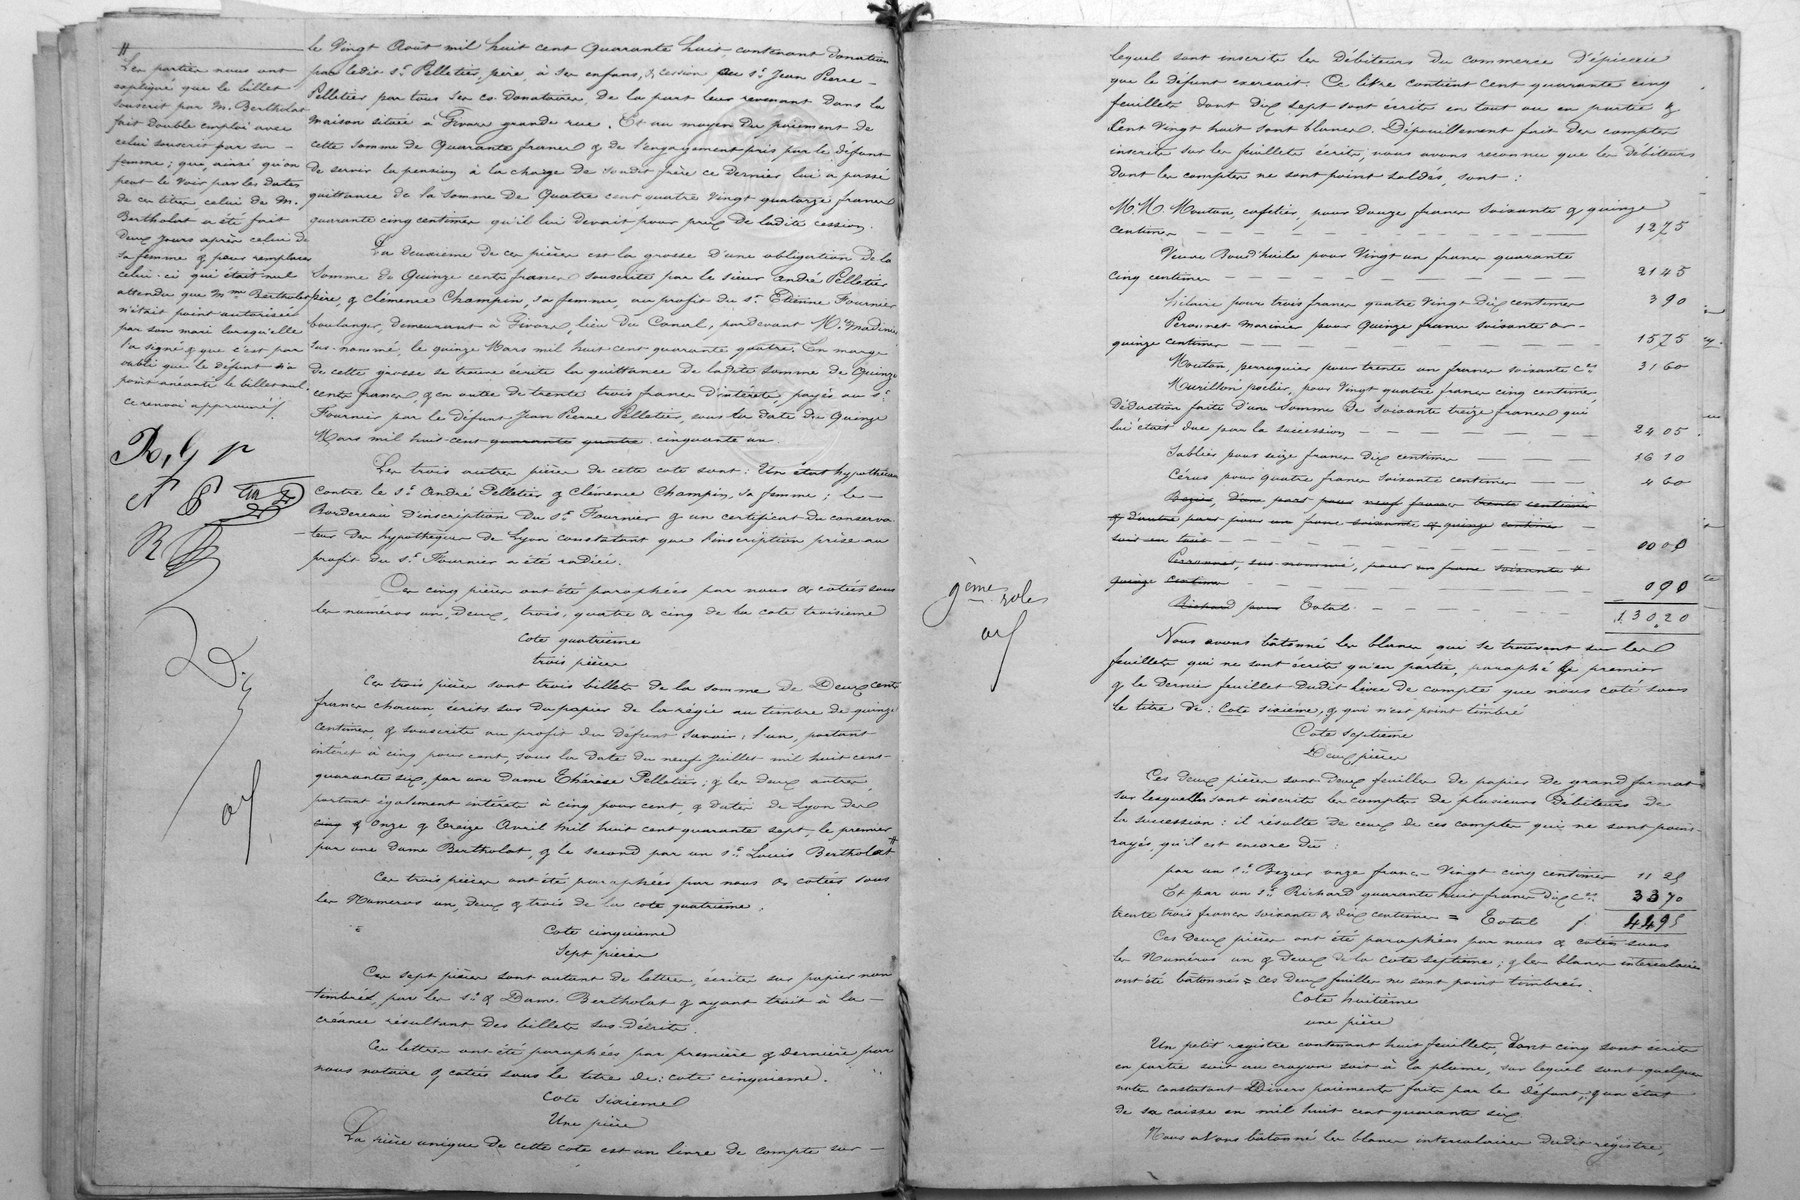 #
Les parties nous ont
expliqué que le billet
souscrit par M. Bertholat
fait double emploi avec
celui souscrit par sa
femme ; que, ainsi qu'on
peut le voir par les dates
de ces titres, celui de M.
Bertholat a été fait
deux jours après celui de
sa femme & pour remplacer
celui-ci qui était nul
attendu que Mme Bertholat
n'était point autorisée
par son mari lorsqu'elle
l'a signé & que c'est par
oubli que le défunt n'a
point anéanti le billet nul.
Ce renvoi approuvé
le Vingt Août mil huit cent quarante huit contenant donation
par ledit sr Pelletier, père, à ses enfans, & cession au sr Jean Pierre
Pelletier par tous ses co-donataires, de la part leur revenant dans la
maison située à Givors grande rue. Et au moyen du paiement de
cette somme de quarante francs & de l'engagement pris par le défunt
de servir la pension à la charge de sondit frère ce dernier lui a passé
quittance de la somme de Quatre cent quatre vingt quatorze francs
quarante cinq centimes qu'il lui devait pour prix de ladite cession.
La deuxième de ces pièces est la grosse d'une obligation de la
somme de Quinze cents francs souscrite par le sieur André Pelletier
père, & Clémence Champin, sa femme, au profit du sr Etienne Fournier
boulanger, demeurant à Givors, lieu du Canal, pardevant Me Madinier
sus-nommé, le quinze Mars mil huit cent quarante quatre. En marge
de cette grosse se trouve écrite la quittance de ladite somme de Quinze
cents francs, & en outre de trente trois francs d'intérêts, payés au sr
Fournier par le défunt Jean Pierre Pelletier, sous la date du Quinze
Mars mil huit cent quarante quatre cinquante un.
Les trois autres pièces de cette cote sont : Un état hypothécaire
contre le sr André Pelletier & Clémence Champin, sa femme ; le
Bordereau d'inscription du sr Fournier & un certificat du conserva-
teur des hypothèques de Lyon constatant que l'inscription prise au
profit du sr Fournier a été radiée.
Ces cinq pièces ont été paraphées par nous & cotées sous
les numéros un, deux, trois, quatre & cinq de la cote troisième
Cote quatrième
trois pièces
Ces trois pièces sont trois billets de la somme de Deux cents
francs chacun, écrits sur du papier de la régie au timbre de quinze
centimes, & souscrits au profit du défunt savoir : l'un, portant
intérêt à cinq pour cent, sous la date du neuf Juillet mil huit cent
quarante six, par une Dame Thérèse Pelletier ; & les deux autres,
portant également intérêts à cinq pour cent, & datés de Lyon des
cinq & onze & treize Avril mil huit cent quarante sept, le premier
par une dame Bertholat, & le second par un sr Louis Bertholat #
Ces trois pièces ont été paraphées par nous & cotées sous
les Numéros un, deux & trois de la cote quatrième.
Cote cinquième
Sept pièces
Ces sept pièces sont autant de lettres, écrites sur papier non
timbrés, par les sr & Dame Bertholat & ayant trait à la
créance résultant des billets sus-décrits.
Ces lettres ont été paraphées par première & dernière par
nous notaire & cotées sous le titre de : cote cinquième.
Cote sixième
Une pièce
La pièce unique de cette cote est un livre de compte sur
9eme rôle
lequel sont inscrits les débiteurs du commerce d'épicerie
que le défunt exerçait. Ce livre contient cent quarante cinq
feuillets dont dix sept sont écrits en tout ou en partie &
Cent vingt huit sont blancs. Dépouillement fait des comptes
inscrits sur les feuillets écrits, nous avons reconnu que les débiteurs
dont les comptes ne sont point soldés, sont :
MM. Mouton, cafetier, pour douze francs soixante & quinze
centimes 12 75
Veuve Boud'huile pour Vingt un francs quarante
cinq centimes 21 45
hilaire pour trois francs quatre vingt dix centimes 3 90
Peronnet marinier pour quinze francs soixante &
quinze centimes 15 75
Mouton, perruquier pour trente un francs soixante ces 31 60
Murillon, poelier, pour vingt quatre francs cinq centimes,
Déduction faite d'une somme de soixante treize francs qui
lui était due par la succession 24 05
Sablier pour seize francs dix centimes 16 10
Cérus pour quatre francs soixante centimes 4 60
Bozier, d'une part pour neuf francs trente centimes
& d'autre part pour un franc soixante & quinze centimes
soit en tout 00 00
Peronnet, sus-nommé, pour un franc soixante &
quinze centimes 0 90
Richard pour Total 130,20
Nous avons bâtonné les blancs qui se trouvent sur les
feuillets qui ne sont écrits qu'en partie, paraphé le premier
& le dernier feuillet dudit livre de compte que nous coté sous
le titre de : Cote sixième, & qui n'est point timbré
Cote septième
Deux pièces
Ces deux pièces sont deux feuilles de papier de grand format
sur lesquelles sont inscrits les comptes de plusieurs débiteurs de
la succession : il résulte de ceux de ces comptes qui ne sont point
rayés, qu'il est encore dû :
par un sr Bozier onze francs Vingt cinq centimes 11 25
Et par un sr Richard quarante huit francs dix ces 33 70
trente trois francs soixante & dix centimes = Total f. 44 95
Ces deux pièces ont été paraphées par nous & cotées sous
les Numéros un & deux de la cote septième ; & les blancs intercalaires
ont été bâtonnés = ces deux feuilles ne sont point timbrées.
Cote huitième
une pièce
Un petit registre contenant huit feuillets, dont cinq sont écrits
en partie soit au crayon soit à la plume, sur lequel sont quelques
notes constatant Divers paiements faits par le défunt, & un état
de sa caisse en mil huit cent quarante six.
Nous avons bâtonné les blancs intercalaires dudit régistre,